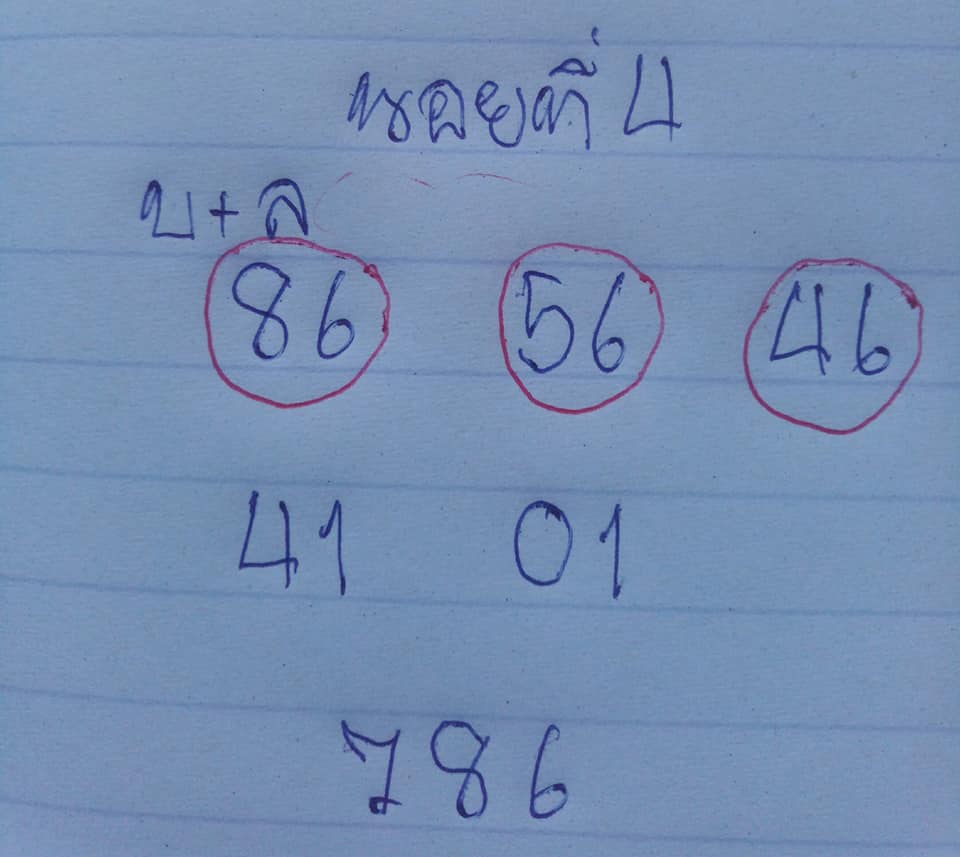 หอยที่ 4
บ+ล
86 56 46
41 01
786